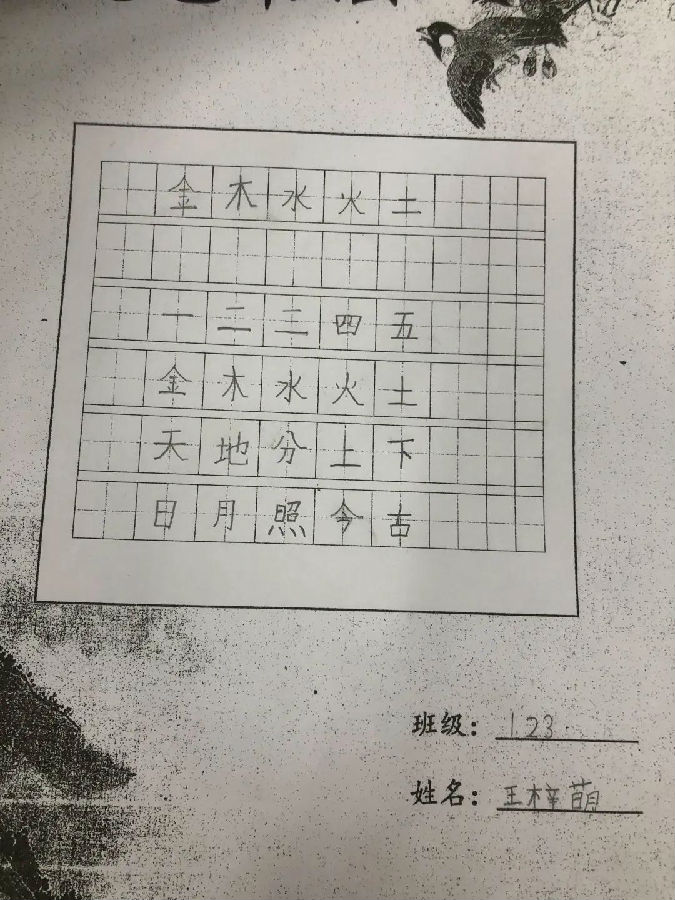 金木水火土
一二二四五
金木水火土
天地分上下
日月照今古
班级：123
姓名：王梓萌